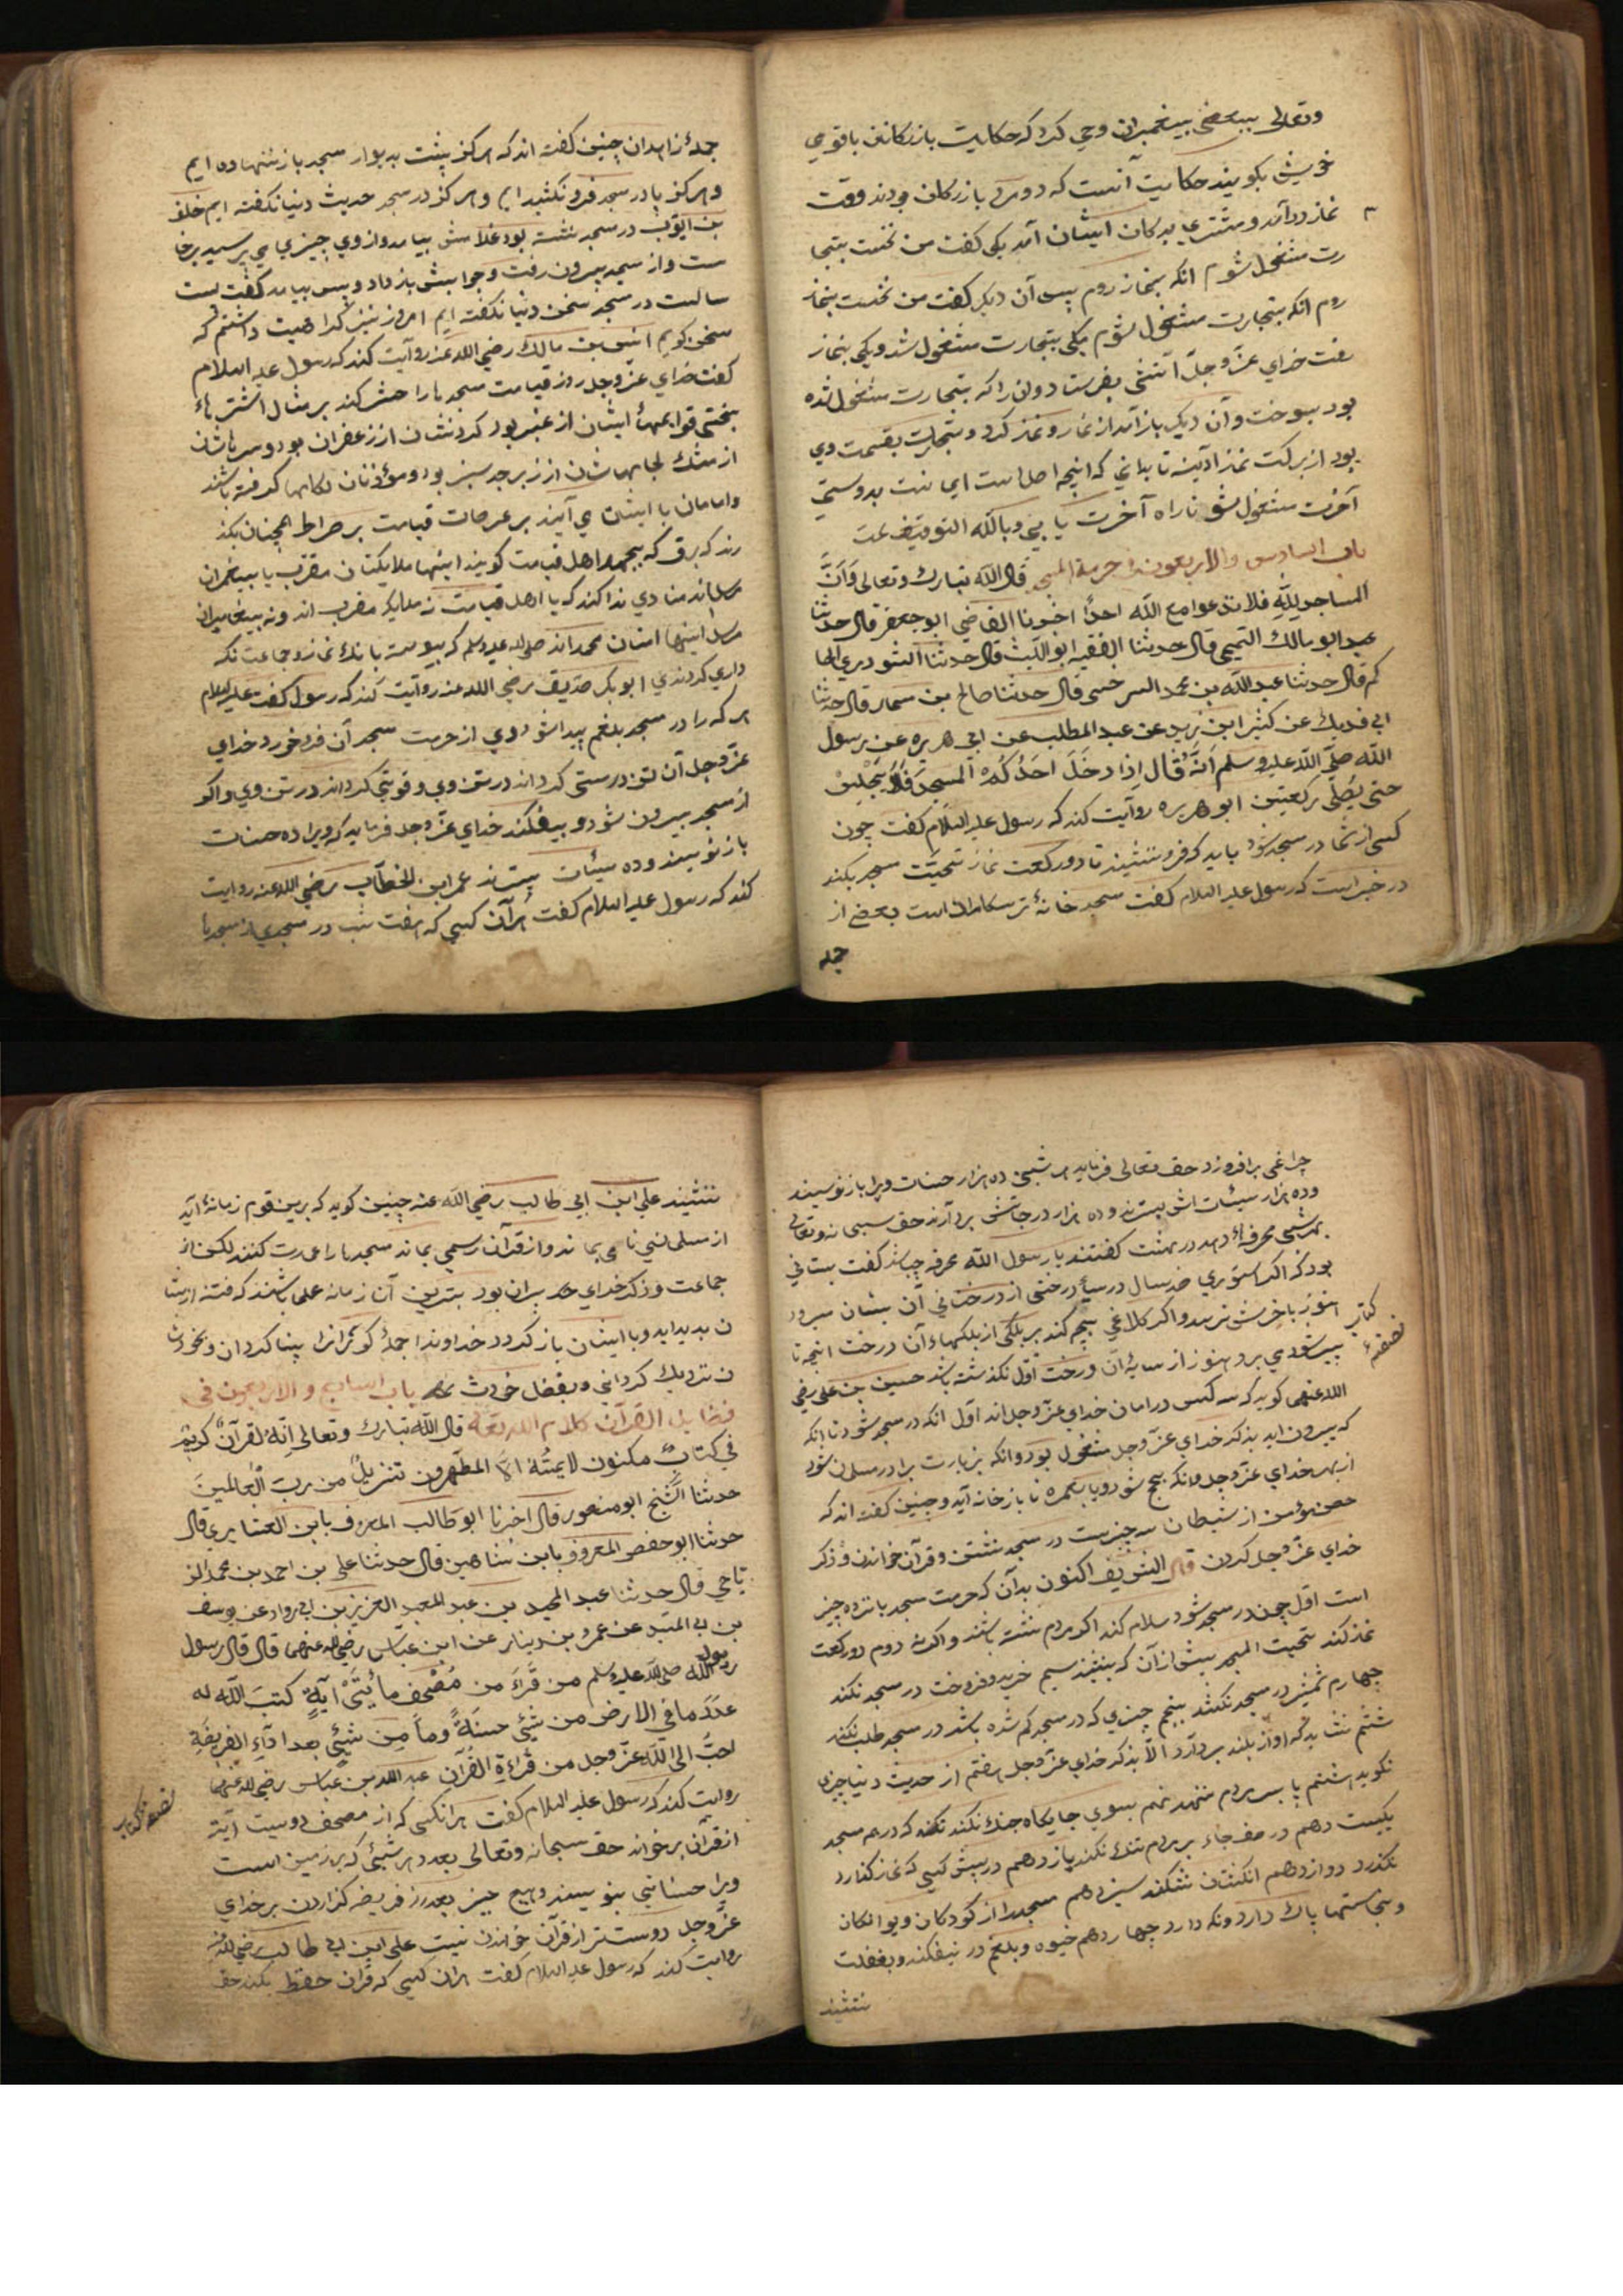 وتعالی ببعضی پیغمبران وحی کرد که حکایت بازرکانان با قوم
خویش بکویند حکایت آنست که دو مرد بازرکان بودند وقت
نماز درآمد و مشتری بدکان ایشان آمد یکی کفت من نخست بتجا
رت مشغول شوم انکه بنماز روم پس آن دیکر کفت من نخست بنماز
روم انکه بتجارت مشغول شوم یکی بتجارت مشغول شد و یکی بنماز
رفت خدای عزّ وجلّ آتشی بفرستاد وان را که بتجارت مشغول شده
بود بسوخت وآن دیکر باز آمد از نماز و تجارت بقسمت وی
بود از برکت نماز آدینه تا بدانی که اینجه اصل است
آخرت مشغول شو تا راه آخرت یابی وبالله التوفیق
باب السادس والاربعون فی حرمة المسجد قال الله تبارک وتعالی وَاَنَّ
المساجد لِلّهِ فلا تدعوا مع اللّه احدًا اخبرنا القاضی ابو جعفر قال حدثنا
عبد ابو مالک التمیمی قال حدثنا الفقیه ابو اللّیث قال حدثنا الحا
کم قال حدثنا عبد الله بن محمد السرخسی قال حدثنا صالح بن سمار قال حدثنا
ابی فدیک عن کثیر ابن زید عن عبد المطلب عن ابی هریره عن رسول
اللّه صلّی اللّه علیه وسلم اَنَّهُ قال اِذا دخَلَ احَدُکُمْ المسجِدَ فَلَا یَجْلِسْ
حتی یُصَلّی رکعتین ابو هریره روایت کند که رسول علیه السلام کفت چون
کسی از شما در مسجد شود باید که فرو ننشیند تا دو رکعت نماز تحیّت مسجد بکند
در خبر است که رسول علیه السلام کفت مسجد خانهٔ ترسکاران است بعضی از
جمله
جملهٔ زاهدان چنین کفته اند که هرکز پشت بدیوار مسجد باز ننهاده ایم
وهرکز پا در مسجد فرو نکشیده ایم وهرکز در مسجد حدیث دنیا نکفته ایم خلف
بن ایّوب در مسجد نشسته بود غلامش بیامد و از وی چیزی می پرسید برخا
ست واز مسجد بیرون رفت و جوابش باز داد و پس بیامد کفت بیست
سالست در مسجد سخن دنیا نکفته ایم امروز نیز کراهیت داشتم که
سخن کویم انس بن مالک رضی الله عنه روایت کند که رسول علیه السلام
کفت خدای عزّ وجل روز قیامت مسجدها را حشر کند بر مثال اشتر هاء
بختی قوایمهاء ایشان از عنبر بود کردنشان از زعفران بود وسرهاشان
از مشک لجامهاشان از زبرجد سبز بود ومؤذنان لکامها کرفته باشند
وامامان با ایشان می آیند بر عرصات قیامت بر صراط همچنان بکذ
رند که برق که بجهد اهل قیامت کویند اینها ملایکتان مقرب یا پیغمبران
مرسل اند منادی ندا کند که یا اهل قیامت نه ملایکه مقرب اند ونه پیغامبران
مرسل اینها امتان محمد اند صلی الله علیه وسلم که پیوسته بانک نماز وجماعت نکه
داری کردندی ابو بکر صدیق رضی الله عنه روایت کند که رسول کفت علیه السلام
هرکه را در مسجد بلغم پیدا شود وی از حرمت مسجد آن فرو خورد خدای
عزّ وجل آن تن درستی کرداند در تن وی وقوّتی کرداند در تن وی واکر
از مسجد بیرون شود و بیفکند خدای عزّ وجل فرماید که ویرا ده حسنات
باز نویسند وده سیئات بسترند عمر ابن الخطّاب رضی الله عنه روایت
کند که رسول علیه السلام کفت هر آن کسی که هفت شب در مسجدی از مسجدها
چراغی برافروزد حق تعالی فرماید هر شبی ده هزار حسنات ویرا باز نویسند
وده هزار سیئات اش بسترند وده هزار درجاتش بردارند حق سبحانه وتعالی
بهر شبی غرفهٔ دهد در بهشت کفتند یا رسول اللّه غرفه چباشد کفت بستانی
بود که اکر اشتری صد سال در سیر درختی از درختان آن بستان میرود
هنوز باخرش نرسد واکر کلاغی بچه کند بر بلکی از بلکهاء آن درخت
پیر شود می برد هنوز از سایهٔ آن درخت اوّل نکذشته باشد حسین بن علی رضی
الله عنهما کوید که سه کس در امان خدای عزّ وجل اند اوّل آنکه در مسجد شود تا آنکه
که بیرون اید بذکر خدای عزّ وجل مشغول بود وانکه بزیارت برادر مسلمان شود
از بهر خدای عزّ وجل وانکه بحج شود ویا بعمره تا باز خانه آید وچنین کفته اند که
حصن مؤمن از شیطان سه چیزست در مسجد نشستن وقرآن خواندن وذکر
خدای عزّ وجل کردن قال الشریف اکنون بدان که حرمت مسجد پانزده چیز
است اوّل چون در مسجد شود سلام کند اکر مردم نشسته باشند واکر نه دوم دو رکعت
نماز کند تحیت المسجد پیش از آن که بنشیند سیم خرید وفروخت در مسجد نکند
چهارم شمشیر در مسجد نکشد پنجم چیزی که در مسجد کم شده باشد در مسجد طلب نکند
ششم نشاید که آواز بلند بردارد الّا بذکر خدای عزّ وجل هفتم از حدیث دنیا چیزی
نکوید هشتم پا بر سر مردم ننهد نهم بسوی جایکاه جنک نکند که در هم مسجد
یکیست دهم در صف جاء بر مردم تنک نکند یازدهم در پیش کسی که نماز کذارد
نکذرد دوازدهم انکشتان نشکند سیزدهم مسجد را از کودکان و دیوانکان
ونجاستها پاک دارد ونکه دارد چهاردهم خیوه وبلغم در نیفکند وبغفلت
ننشیند
ننشیند علی ابن ابی طالب رضی اللّه عنه چنین کوید که برین قوم زمانهٔ آید
از مسلمانی نامی بماند واز قرآن رسمی بماند مسجدها را عمارت کنند لیکن از
جماعت وذکر خدای ویران بود بترین آن زمانه علما باشند که فتنه از ایشا
ن بدید اید وبا ایشان باز کردد خداوندا جملهٔ کوکمرانرا بینا کردان
ن نزدیک کردانی وبفضل خودت باب السابع والاربعون فی
فضایل القرآن کلام الله تعالی قال اللّه تبارک وتعالی اِنّهُ لقرآنٌ کریمٌ
فی کتابٍ مکنون لا یمسّهُ الّا المطهّرون تنزیلٌ من ربّ العالمین
حدثنا الشیخ ابو منصور قال اخبرنا ابو طالب المعروف بابن العشاری قال
حدثنا ابو حفص المعروف بابن شاهین قال حدثنا علی بن احمد بن محمد الز
یاحی قال حدثنا عبد المجید بن عبد العزیز بن ابی رواد عن یوسف
بن ابی المتید عن عمرو بن دینار عن ابن عباس رضی الله عنهما قال قال رسول
اللّه صلی اللّه علیه وسلم من قَرَأَ من مُصْحَف مأتَیْ آیةٍ کتبَ اللّه له
عدَدَ ما فی الارض من شیئی حسنةً وما من شیئی بعد اداءِ الفریضَةِ
احبُّ الی اللّه عزّ وجل من قراءةِ القرآن عبد الله بن عباس رضی الله عنهما
روایت کند که رسول علیه السلام کفت هر آنکسی که از مصحف دویست آیة
از قرآن برخواند حق سبحانه وتعالی بعدد هر شیئی که بر زمین است
ویرا حسناتی بنویسند وهیچ چیز بعد از فریضه کزاردن بر خدای
عزّ وجل دوستر از قرآن خواندن نیست علی ابن ابی طالب رضی الله عنه
روایت کند که رسول علیه السلام کفت هر آن کسی که قرآن حفظ بکند حق